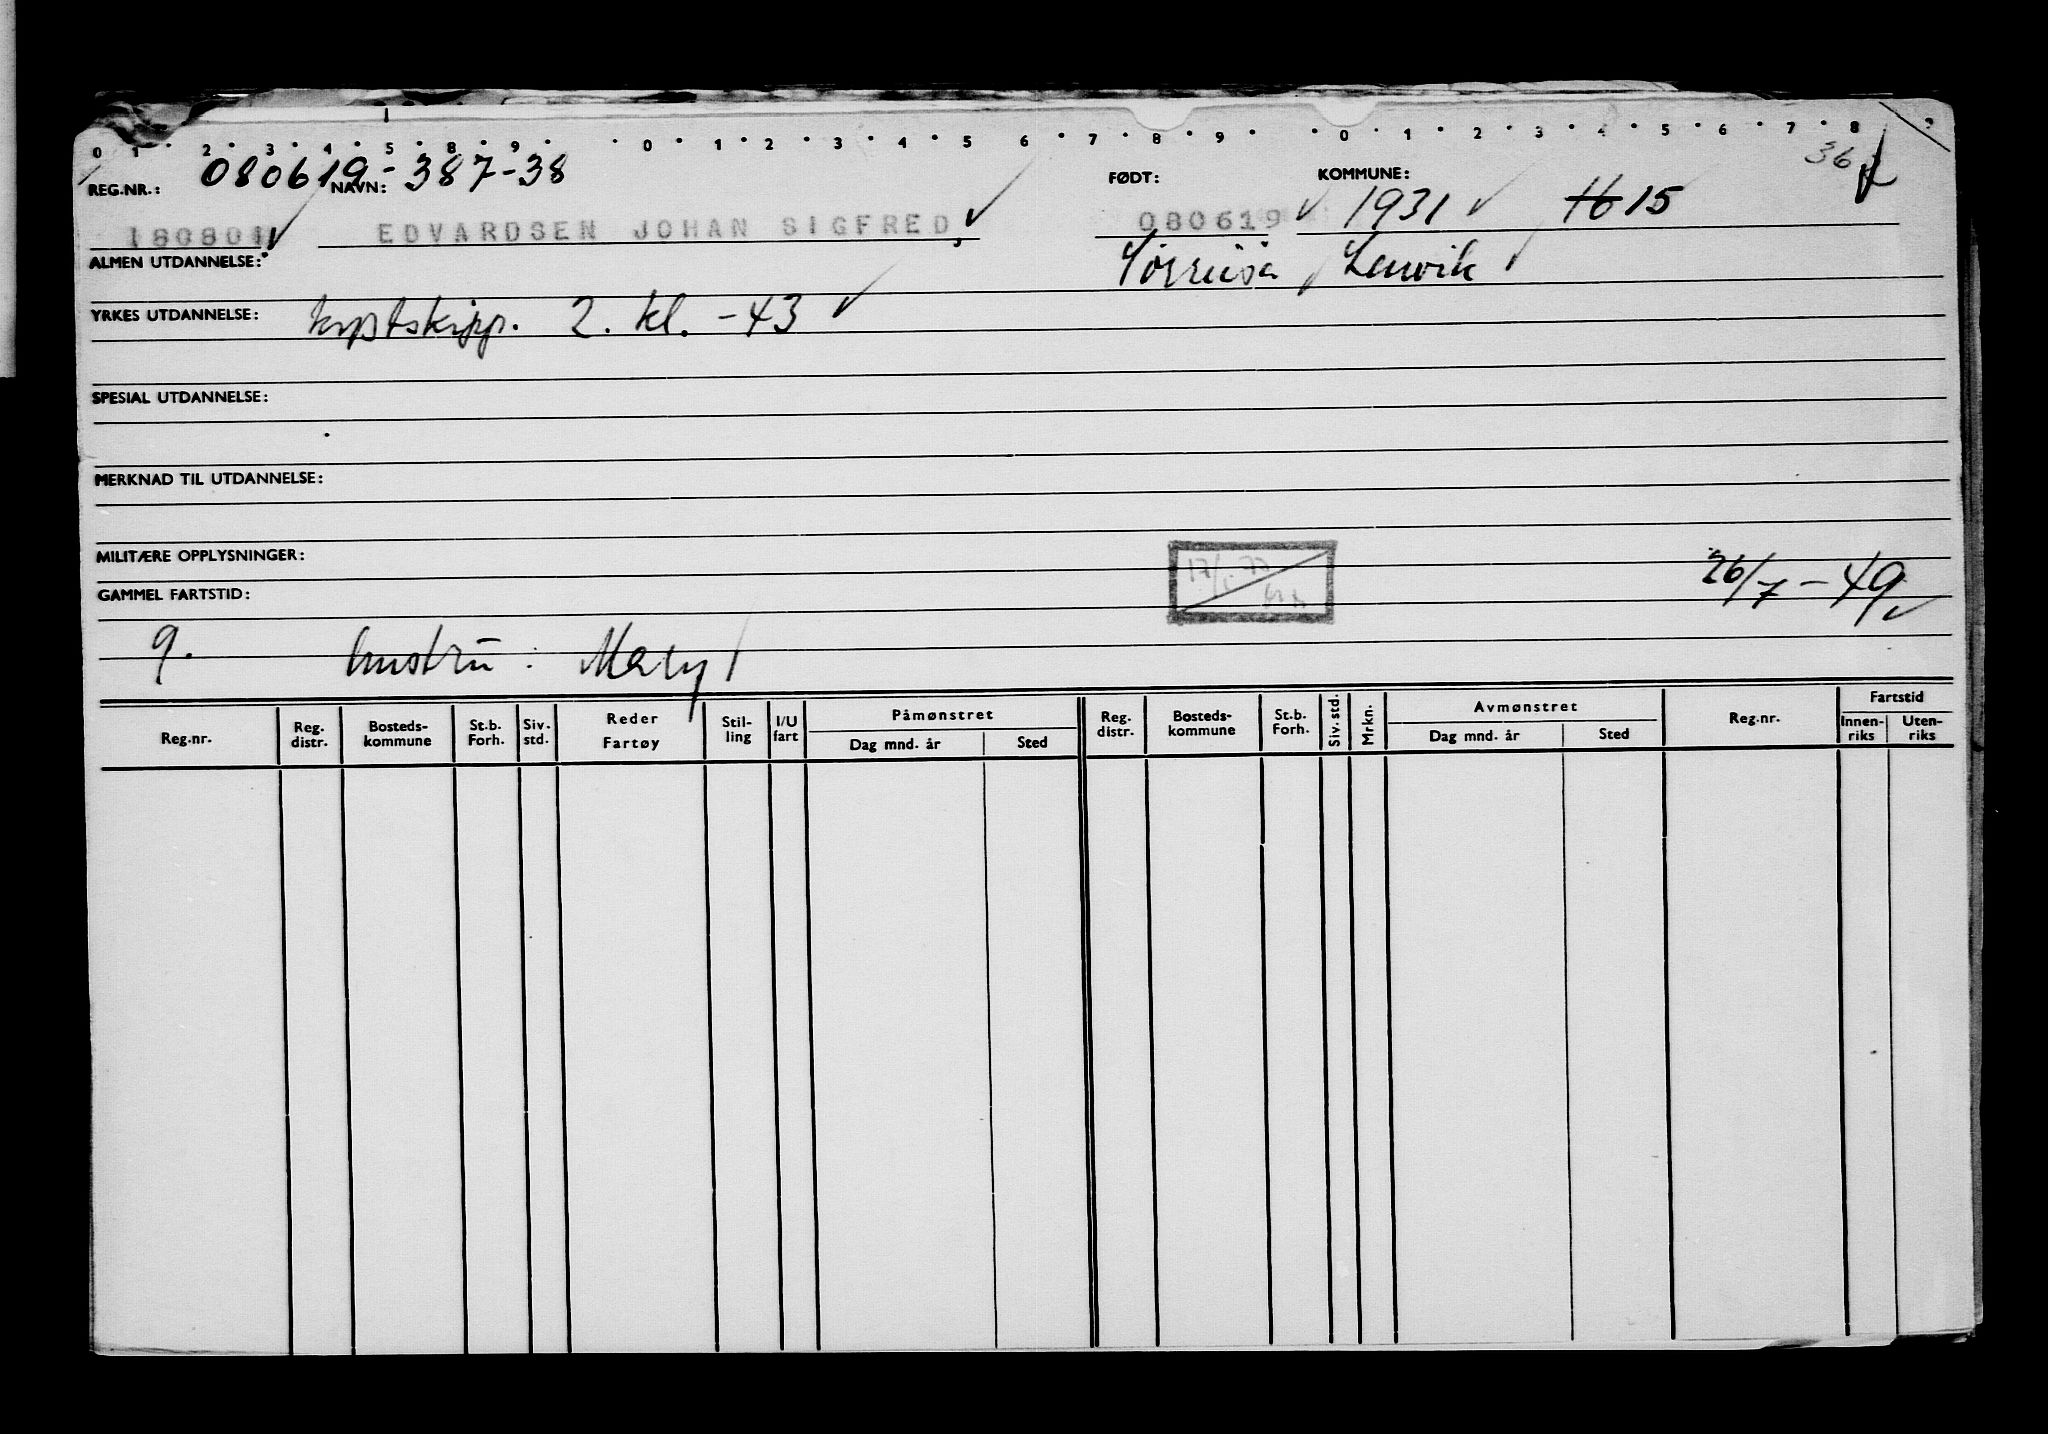 0 1 2 3 4 5 8 9 0 1 2 3 4 5 6 7 8 9 0 1 2 3 4 5 6 7 8 9
36
REG.NR.: 080619-387-38 NAVN: FØDT: KOMMUNE:
180801 EDVARDSEN JOHAN SIGFRED 080619 1931 16 15
ALMEN UTDANNELSE: Sørreisa Lenvik
YRKES UTDANNELSE: kystskipp. 2. kl. -43
SPESIAL UTDANNELSE:
MERKNAD TIL UTDANNELSE:
MILITÆRE OPPLYSNINGER:
GAMMEL FARTSTID: 26/7-49
g. hustru: Mary
Reg.nr. Reg. distr. Bosteds-kommune St.b. Forh. Siv. std. Reder Fartøy Stil-ling I/U fart Påmønstret Dag mnd. år Sted Reg. distr. Bosteds-kommune St.b. Forh. Siv. std. Mrkn. Avmønstret Dag mnd. år Sted Reg.nr. Fartstid Innen-riks Uten-riks